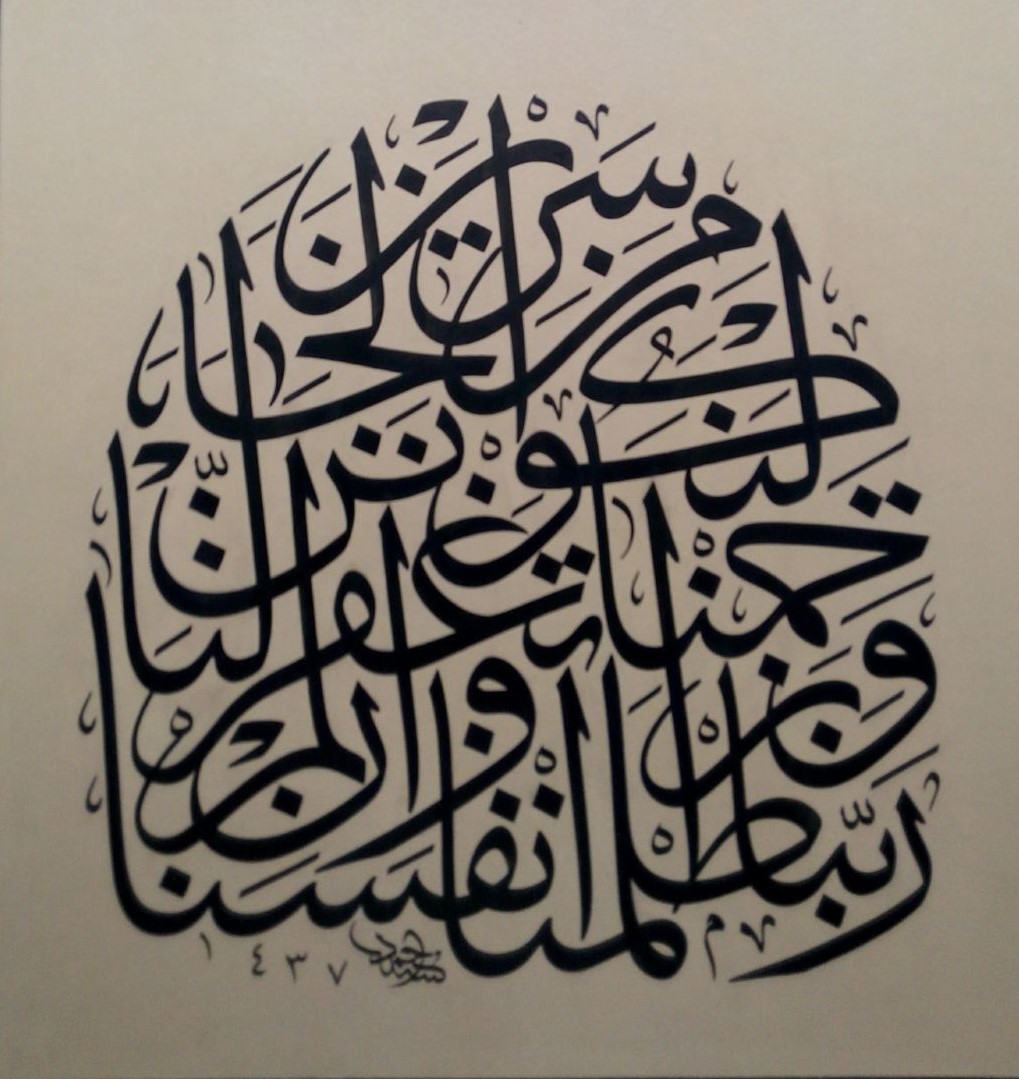 ربنا ظلمنا انفسنا
وان لم تغفر لنا
وترحمنا
لنكونن
من الخاسرين
١٤٣٧